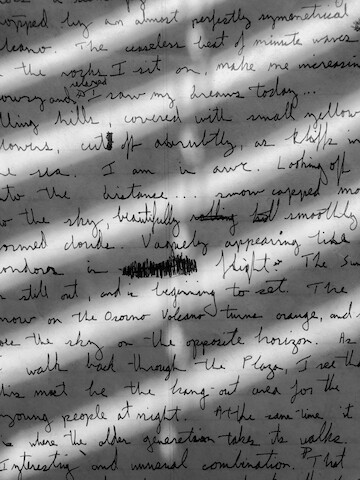 topped by an almost perfectly symmetrical
olcano. The ceaseless beat of minute waves
the rocks I sit on, make me increasin
owsy and relaxed so I saw my dreams today...
lling hills, covered with small yellow
lowers, cut off abruptly, as cliffs in
e sea. I am in awe. Looking off
nto the distance... snow capped m
o the sky, beautifully smoothly
ormed clouds. Vaguely appearing like
ondors in flight. The Sun
still out, and is beginning to set. The
now on the Osorno Volcano turns orange, and
the sky on the opposite horizon. As
walk back through the Plaza, I see tha
his must be the hang-out area for the
young people at night. At the same time it
is where the older generation takes its walks.
Interesting and unusual combination. That